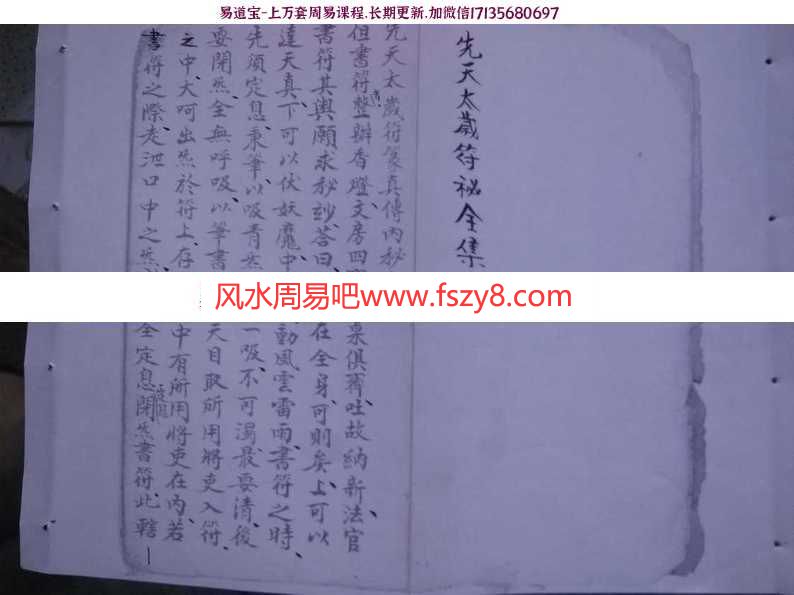 易道宝-上万套周易课程.长期更新.加微信17135680697
先天太歲符祕全集
先天太歲符篆真傳內秘
但書符整辦香燈文房四 桌俱齊吐故納新法官
書符其輿願求秘妙答曰 在全身可則矣上可以
達天真下可以伏妖魔中 動風雲雷雨書符之時
先須定息秉筆以吸青炁 一吸不可濁最要清後
要閉炁全無呼吸以筆書 天目取所用將吏入符
之中大呵出炁於符上存 中有所用將吏在內若
書符之際走泄口中之炁 全定息閉炁書符此轄一
风水周易吧www.fszy8.com